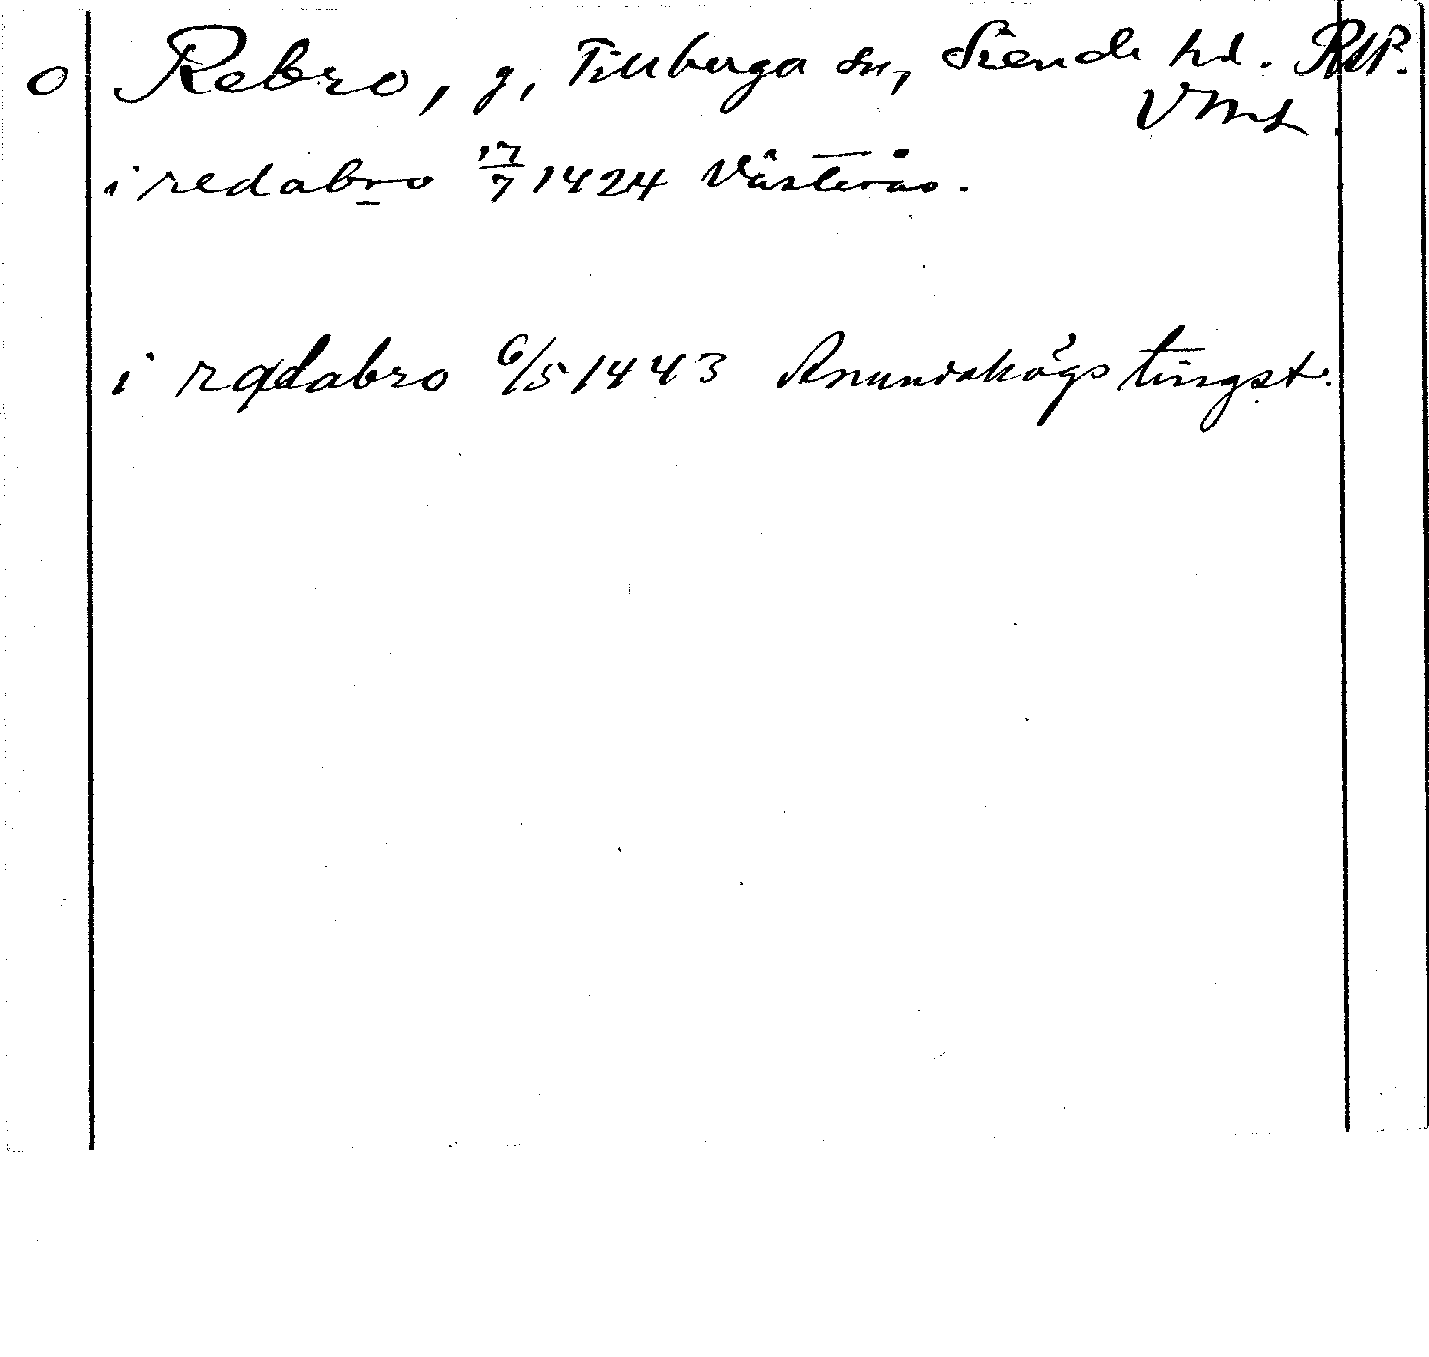 o Rebro, g, Tillberga sn, Siende hd. RAP.
Vml
i redabro 17/7 1424 Västerås.
i rædabro 6/5 1443 Anundshögs tingst.